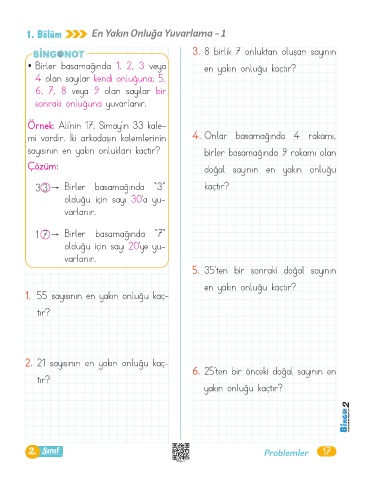 1. Bölüm >>> En Yakın Onluğa Yuvarlama - 1
BİNGO NOT
• Birler basamağında 1, 2, 3 veya
4 olan sayılar kendi onluğuna; 5,
6, 7, 8 veya 9 olan sayılar bir
sonraki onluğuna yuvarlanır.
Örnek: Ali'nin 17, Simay'ın 33 kale-
mi vardır. İki arkadaşın kalemlerinin
sayısının en yakın onlukları kaçtır?
Çözüm:
33 → Birler basamağında "3"
olduğu için sayı 30'a yu-
varlanır.
17 → Birler basamağında "7"
olduğu için sayı 20'ye yu-
varlanır.
1. 55 sayısının en yakın onluğu kaç-
tır?
2. 21 sayısının en yakın onluğu kaç-
tır?
3. 8 birlik 7 onluktan oluşan sayının
en yakın onluğu kaçtır?
4. Onlar basamağında 4 rakamı,
birler basamağında 9 rakamı olan
doğal sayının en yakın onluğu
kaçtır?
5. 35'ten bir sonraki doğal sayının
en yakın onluğu kaçtır?
6. 25'ten bir önceki doğal sayının en
yakın onluğu kaçtır?
BİNGO 2
2. Sınıf
Problemler 17